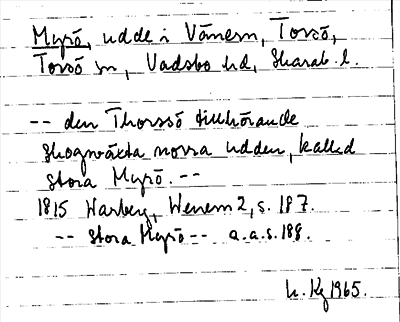 Myrö, udde i Vänern, Torsö,
Torsö sn, Vadsbo hd, Skarab. l.
-- den Thorssö tillhörande
skogväxta norra udden, kallad
Stora Myrö. --
1815 Warberg, Wenern 2, s. 187.
-- Stora Myrö -- a.a.s. 188.
1965.